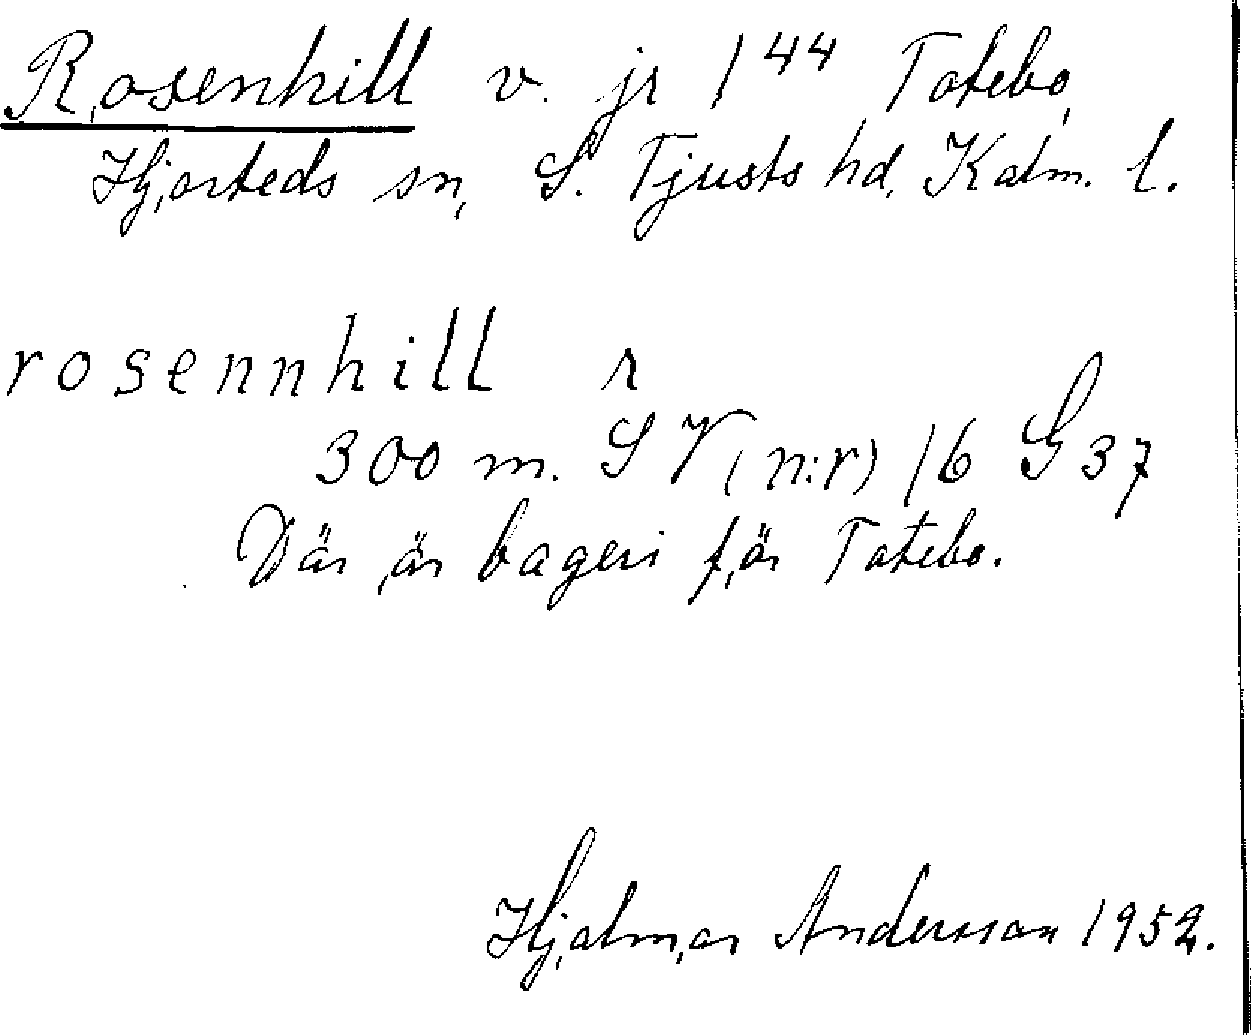 Rosenhill v. jr 1⁴⁴ Totebo,
Hjorteds sn, S. Tjusts hd, Kalm. l.
rosennhill r
300 m. SV (n:r) 16 G 37
Där är bageri för Totebo.
Hjalmar Andersson 1952.